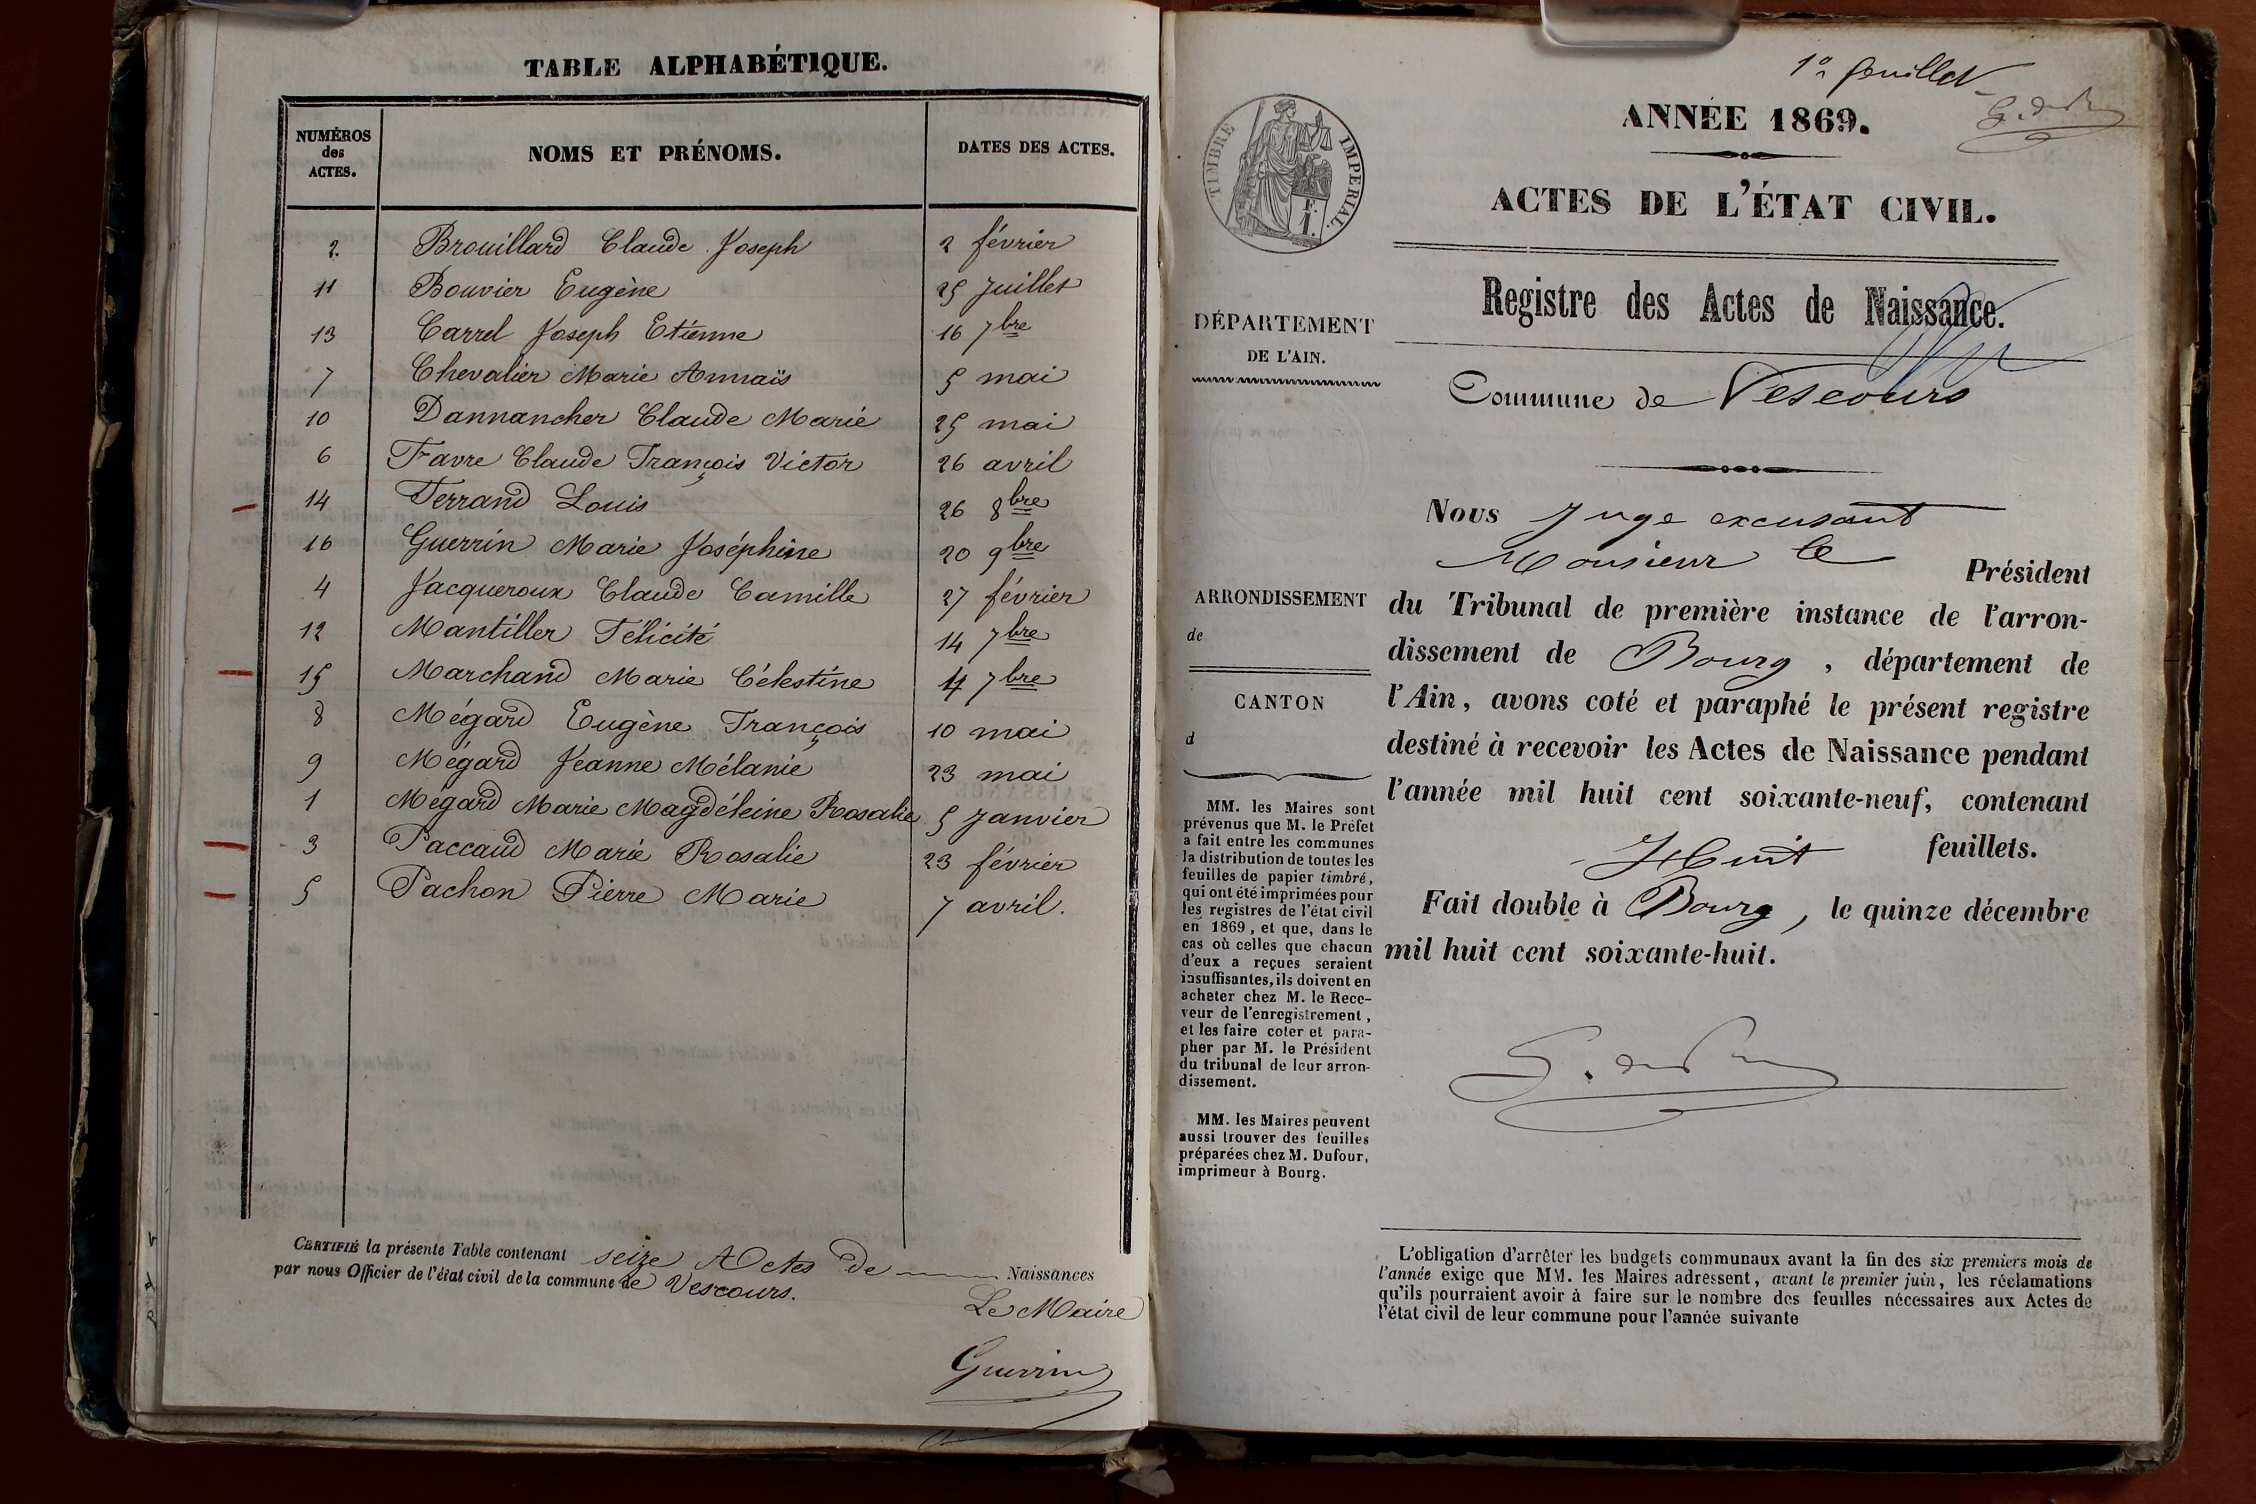 TABLE ALPHABÉTIQUE.
NUMÉROS des ACTES. NOMS ET PRÉNOMS. DATES DES ACTES.
2. Brouillard Claude Joseph 2 février
11 Bouvier Eugène 25 Juillet
13 Carrel Joseph Etienne 16 7bre
7 Chevalier Marie Annaïs 5 mai
10 Dannancher Claude Marie 25 mai
6 Favre Claude François Victor 26 avril
14 Ferrand Louis 26 8bre
16 Guerrin Marie Joséphine 20 9bre
4 Jacqueroux Claude Camille 27 février
12 Mantiller Félicité 14 7bre
15 Marchand Marie Célestine 7bre
8 Mégard Eugène François 10 mai
9 Mégard Jeanne Mélanie 23 mai
1 Mégard Marie Magdéleine Rosalie 5 Janvier
3 Paccaud Marie Rosalie 23 février
5 Pachon Pierre Marie 7 avril.
CERTIFIÉ la présente Table contenant seize Actes de Naissances
par nous Officier de l'état civil de la commune de Vescours.
Le Maire
Guerrin
1er feuillet
ANNÉE 1869.
ACTES DE L'ÉTAT CIVIL.
TIMBRE IMPERIAL.
Registre des Actes de Naissance.
DÉPARTEMENT
DE L'AIN.
Commune de Vescours
ARRONDISSEMENT
de
CANTON
d
MM. les Maires sont
prévenus que M. le Préfet
a fait entre les communes
la distribution de toutes les
feuilles de papier timbré,
qui ont été imprimées pour
les registres de l'état civil
en 1869, et que, dans le
cas où celles que chacun
d'eux a reçues seraient
insuffisantes, ils doivent en
acheter chez M. le Rece-
veur de l'enregistrement,
et les faire coter et para-
pher par M. le Président
du tribunal de leur arron-
dissement.
MM. les Maires peuvent
aussi trouver des feuilles
préparées chez M. Dufour,
imprimeur à Bourg.
Nous Juge excusant
Monsieur le Président
du Tribunal de première instance de l'arron-
dissement de Bourg, département de
l'Ain, avons coté et paraphé le présent registre
destiné à recevoir les Actes de Naissance pendant
l'année mil huit cent soixante-neuf, contenant
Huit feuillets.
Fait double à Bourg, le quinze décembre
mil huit cent soixante-huit.
L'obligation d'arrêter les budgets communaux avant la fin des six premiers mois de
l'année exige que MM. les Maires adressent, avant le premier juin, les réclamations
qu'ils pourraient avoir à faire sur le nombre des feuilles nécessaires aux Actes de
l'état civil de leur commune pour l'année suivante